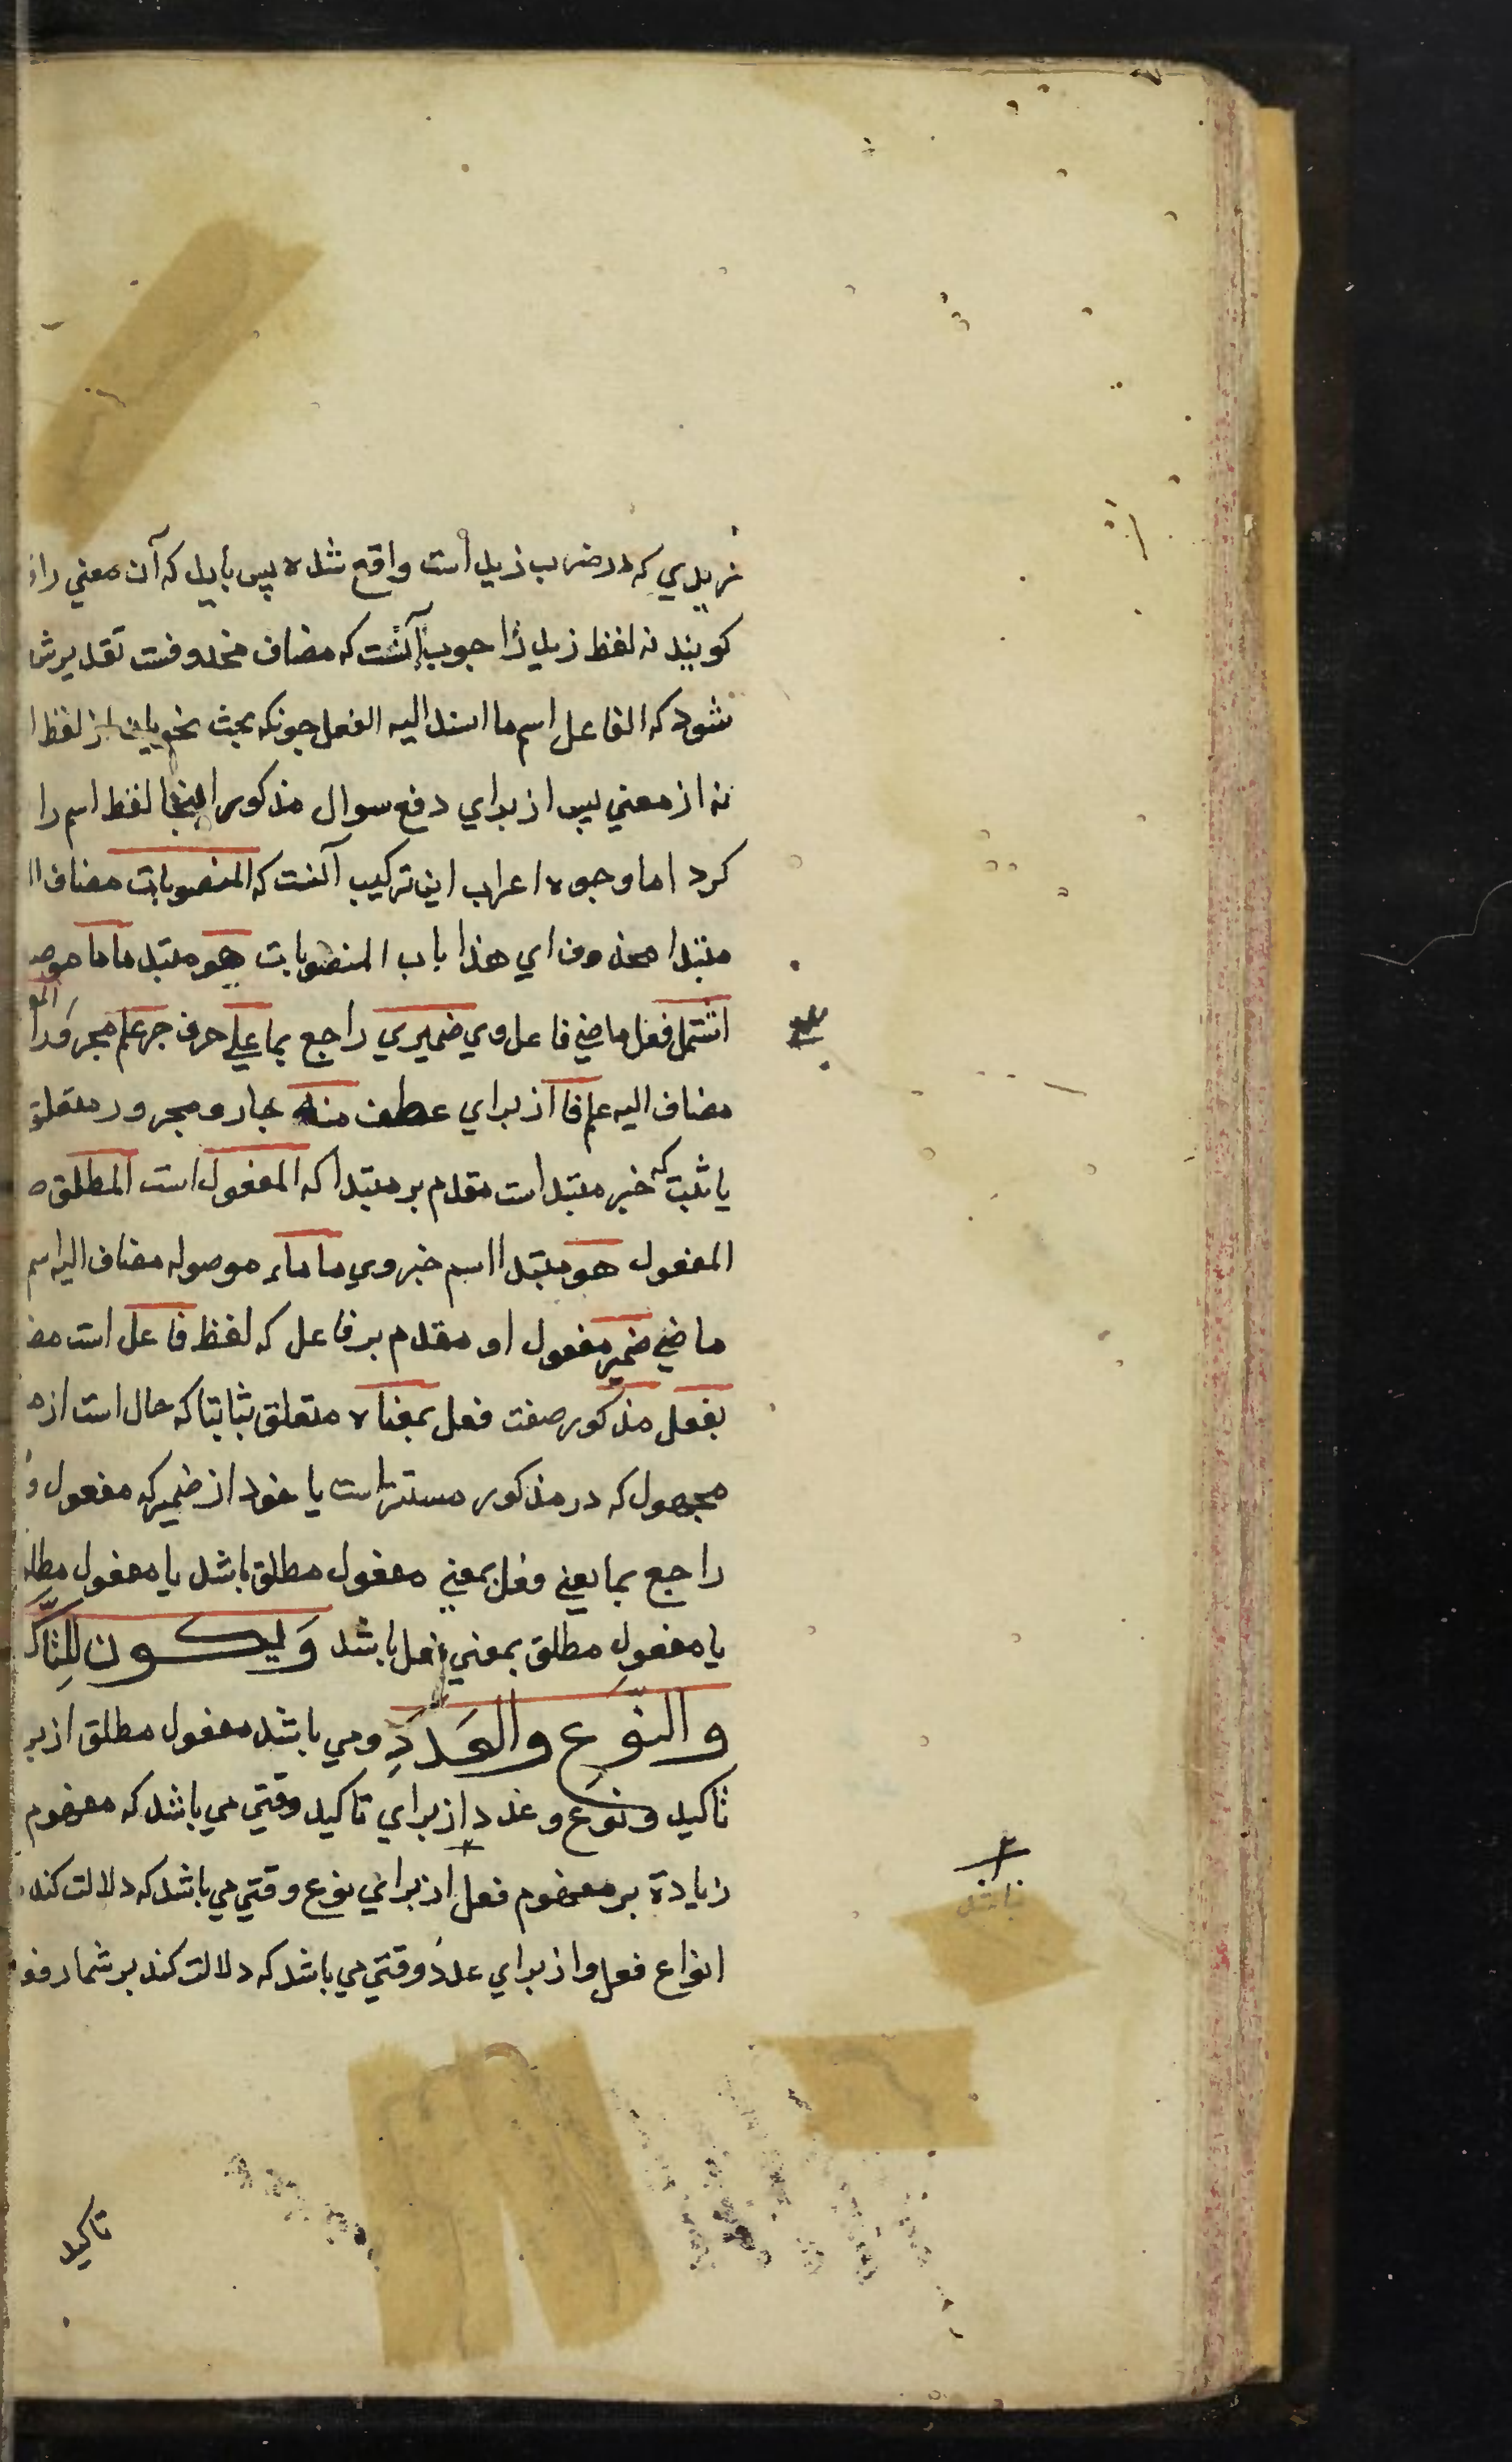 زيدي که در ضرب زيد است واقع شده پس بايد که آن معني را
کويند نه لفظ زيد را جوب آنست که مضاف محذوفست تقديرش
شود که الفاعل اسم ما اسند اليه الفعل جونکه بحث نحويان از لفظ ا
نه از معني پس از براي دفع سوال مذکور اينجا لفظ اسم را
کرد اما وجوه اعراب اين ترکيب آنست که المنصوبات مضاف ا
مبتدا محذوف اي هذا باب المنصوبات هو مبتدا ما ما موص
اشتمل فعل ماضي فاعل وي ضميري راجع بما علي حرف جر علم مجرور
مضاف اليه علم فا از براي عطف منه جار و مجرور متعلق
يا ثبت که خبر مبتدا است مقدم بر مبتدا که المفعول است المطلق ص
المفعول هو مبتدا اسم خبر وي ما ماء موصوله مضاف اليه اسم
ماضي ضمير مفعول او مقدم بر فاعل که لفظ فاعل است مض
بفعل مذکور صفت فعل بمعناه متعلق بثابتا که حال است از
مجهول که در مذکور مستتر است يا خود از ضمير که مفعول و
راجع بما يعني فعل بمعني مفعول مطلق باشد يا مفعول مطل
يا مفعول مطلق بمعني فعل باشد وَيکون لِلتَّاک
والنَّوعِ والعَدَدِ و مي باشد مفعول مطلق از بر
تاکيد و نوع و عدد از براي تاکيد وقتي مي باشد که مفهوم
زيادة بر مفهوم فعل از براي نوع وقتي مي باشد که دلالت کند
انواع فعل و از براي عدد وقتي مي باشد که دلالت کند بر شمار فع
نباشد
تاکيد